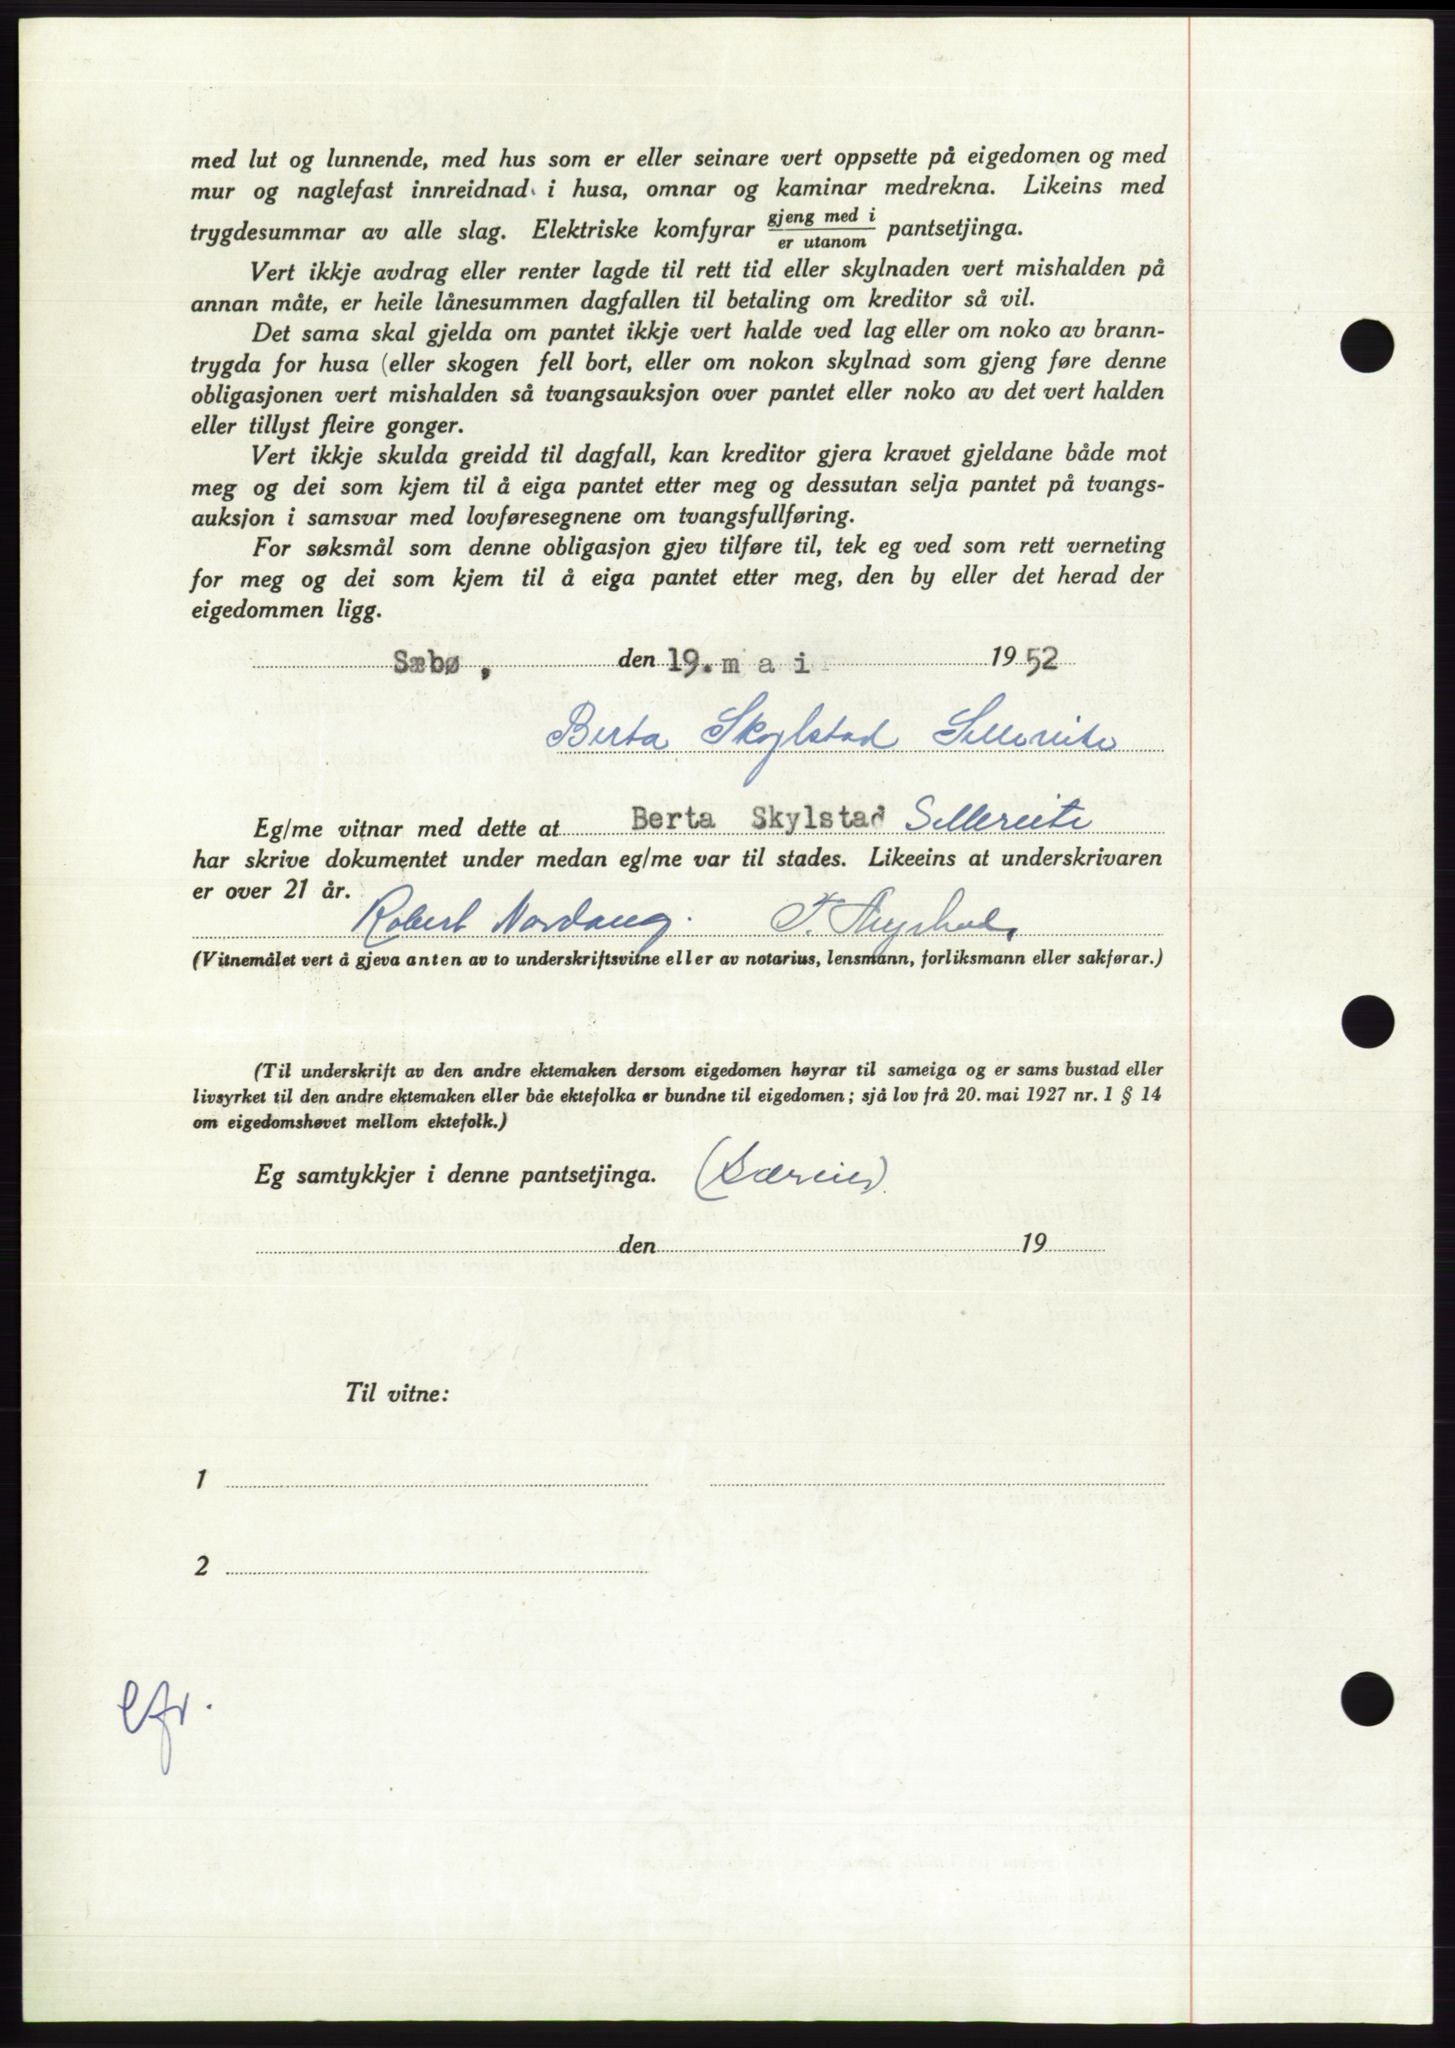 med lut og lunnende, med hus som er eller seinare vert oppsette på eigedomen og med
mur og naglefast innreidnad i husa, omnar og kaminar medrekna. Likeins med
trygdesummar av alle slag. Elektriske komfyrar gjeng med i / er utanom pantsetjinga.
Vert ikkje avdrag eller renter lagde til rett tid eller skylnaden vert mishalden på
annan måte, er heile lånesummen dagfallen til betaling om kreditor så vil.
Det sama skal gjelda om pantet ikkje vert halde ved lag eller om noko av brann-
trygda for husa (eller skogen fell bort, eller om nokon skylnad som gjeng føre denne
obligasjonen vert mishalden så tvangsauksjon over pantet eller noko av det vert halden
eller tillyst fleire gonger.
Vert ikkje skulda greidd til dagfall, kan kreditor gjera kravet gjeldane både mot
meg og dei som kjem til å eiga pantet etter meg og dessutan selja pantet på tvangs-
auksjon i samsvar med lovføresegnene om tvangsfullføring.
For søksmål som denne obligasjon gjev tilføre til, tek eg ved som rett verneting
for meg og dei som kjem til å eiga pantet etter meg, den by eller det herad der
eigedommen ligg.
Sæbø, den 19. mai 1952
Berta Skylstad Sellereite
Eg/me vitnar med dette at Berta Skylstad Sellereite
har skrive dokumentet under medan eg/me var til stades. Likeeins at underskrivaren
er over 21 år.
Robert Nordang. F.
(Vitnemålet vert å gjeva anten av to underskriftsvitne eller av notarius, lensmann, forliksmann eller sakførar.)
(Til underskrift av den andre ektemaken dersom eigedomen høyrar til sameiga og er sams bustad eller
livsyrket til den andre ektemaken eller båe ektefolka er bundne til eigedomen; sjå lov frå 20. mai 1927 nr. 1 § 14
om eigedomshøvet mellom ektefolk.)
Eg samtykkjer i denne pantsetjinga. (Særeie)
den 19
Til vitne:
1
2